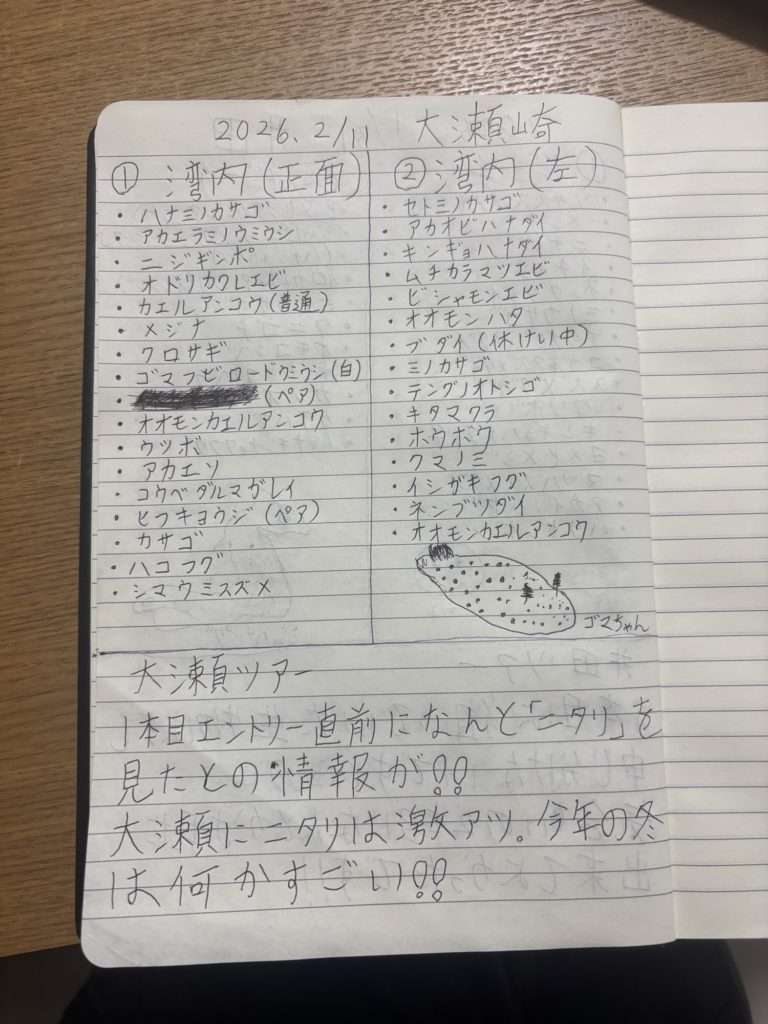 2026. 2/11 大瀬崎
① 湾内(正面)
・ハナミノカサゴ
・アカエラミノウミウシ
・ニジギンポ
・オドリカクレエビ
・カエルアンコウ(普通)
・メジナ
・クロサギ
・ゴマフビロードウミウシ(白)
・(ペア)
・オオモンカエルアンコウ
・ウツボ
・アカエソ
・コウベダルマガレイ
・ヒフキヨウジ(ペア)
・カサゴ
・ハコフグ
・シマウミスズメ
② 湾内(左)
・セトミノカサゴ
・アカオビハナダイ
・キンギョハナダイ
・ムチカラマツエビ
・ビシャモンエビ
・オオモンハタ
・ブダイ(休けい中)
・ミノカサゴ
・テングノオトシゴ
・キタマクラ
・ホウボウ
・クマノミ
・イシガキフグ
・ネンブツダイ
・オオモンカエルアンコウ
ゴマちゃん
大瀬ツアー
1本目エントリー直前になんと「ニタリ」を
見たとの情報が!!
大瀬にニタリは激アツ。今年の冬
は何かすごい!!